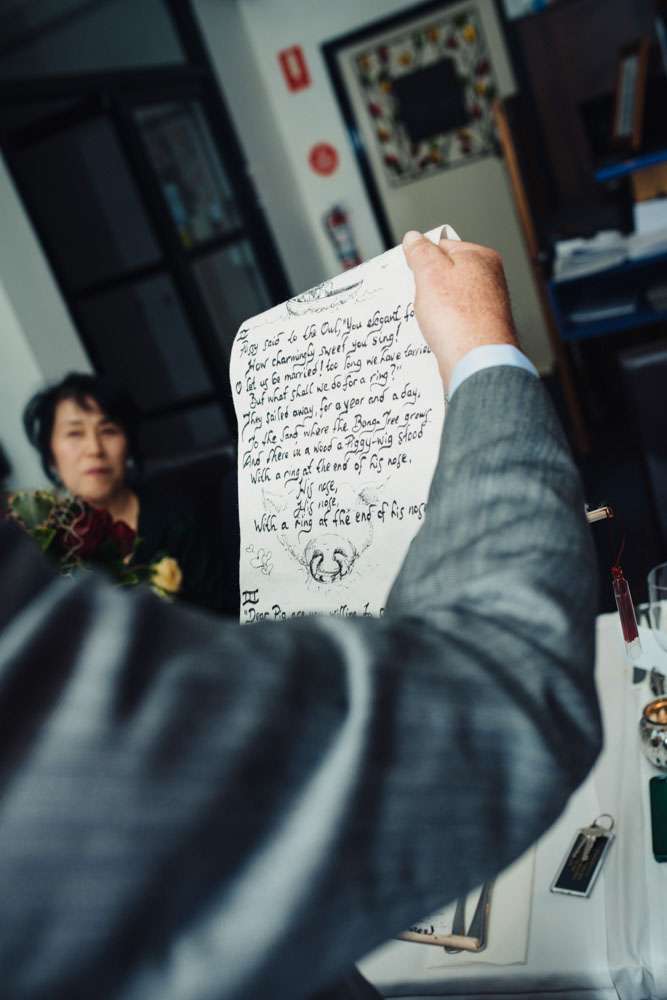 II
Pussy said to the Owl, "You elegant fo
How charmingly sweet you sing!
O let us be married! too long we have tarried
But what shall we do for a ring?"
They sailed away, for a year and a day,
To the land where the Bong-Tree grows
And there in a wood a Piggy-wig stood
With a ring at the end of his nose,
His nose,
His nose,
With a ring at the end of his nose
III
"Dear Pig, are you willing to